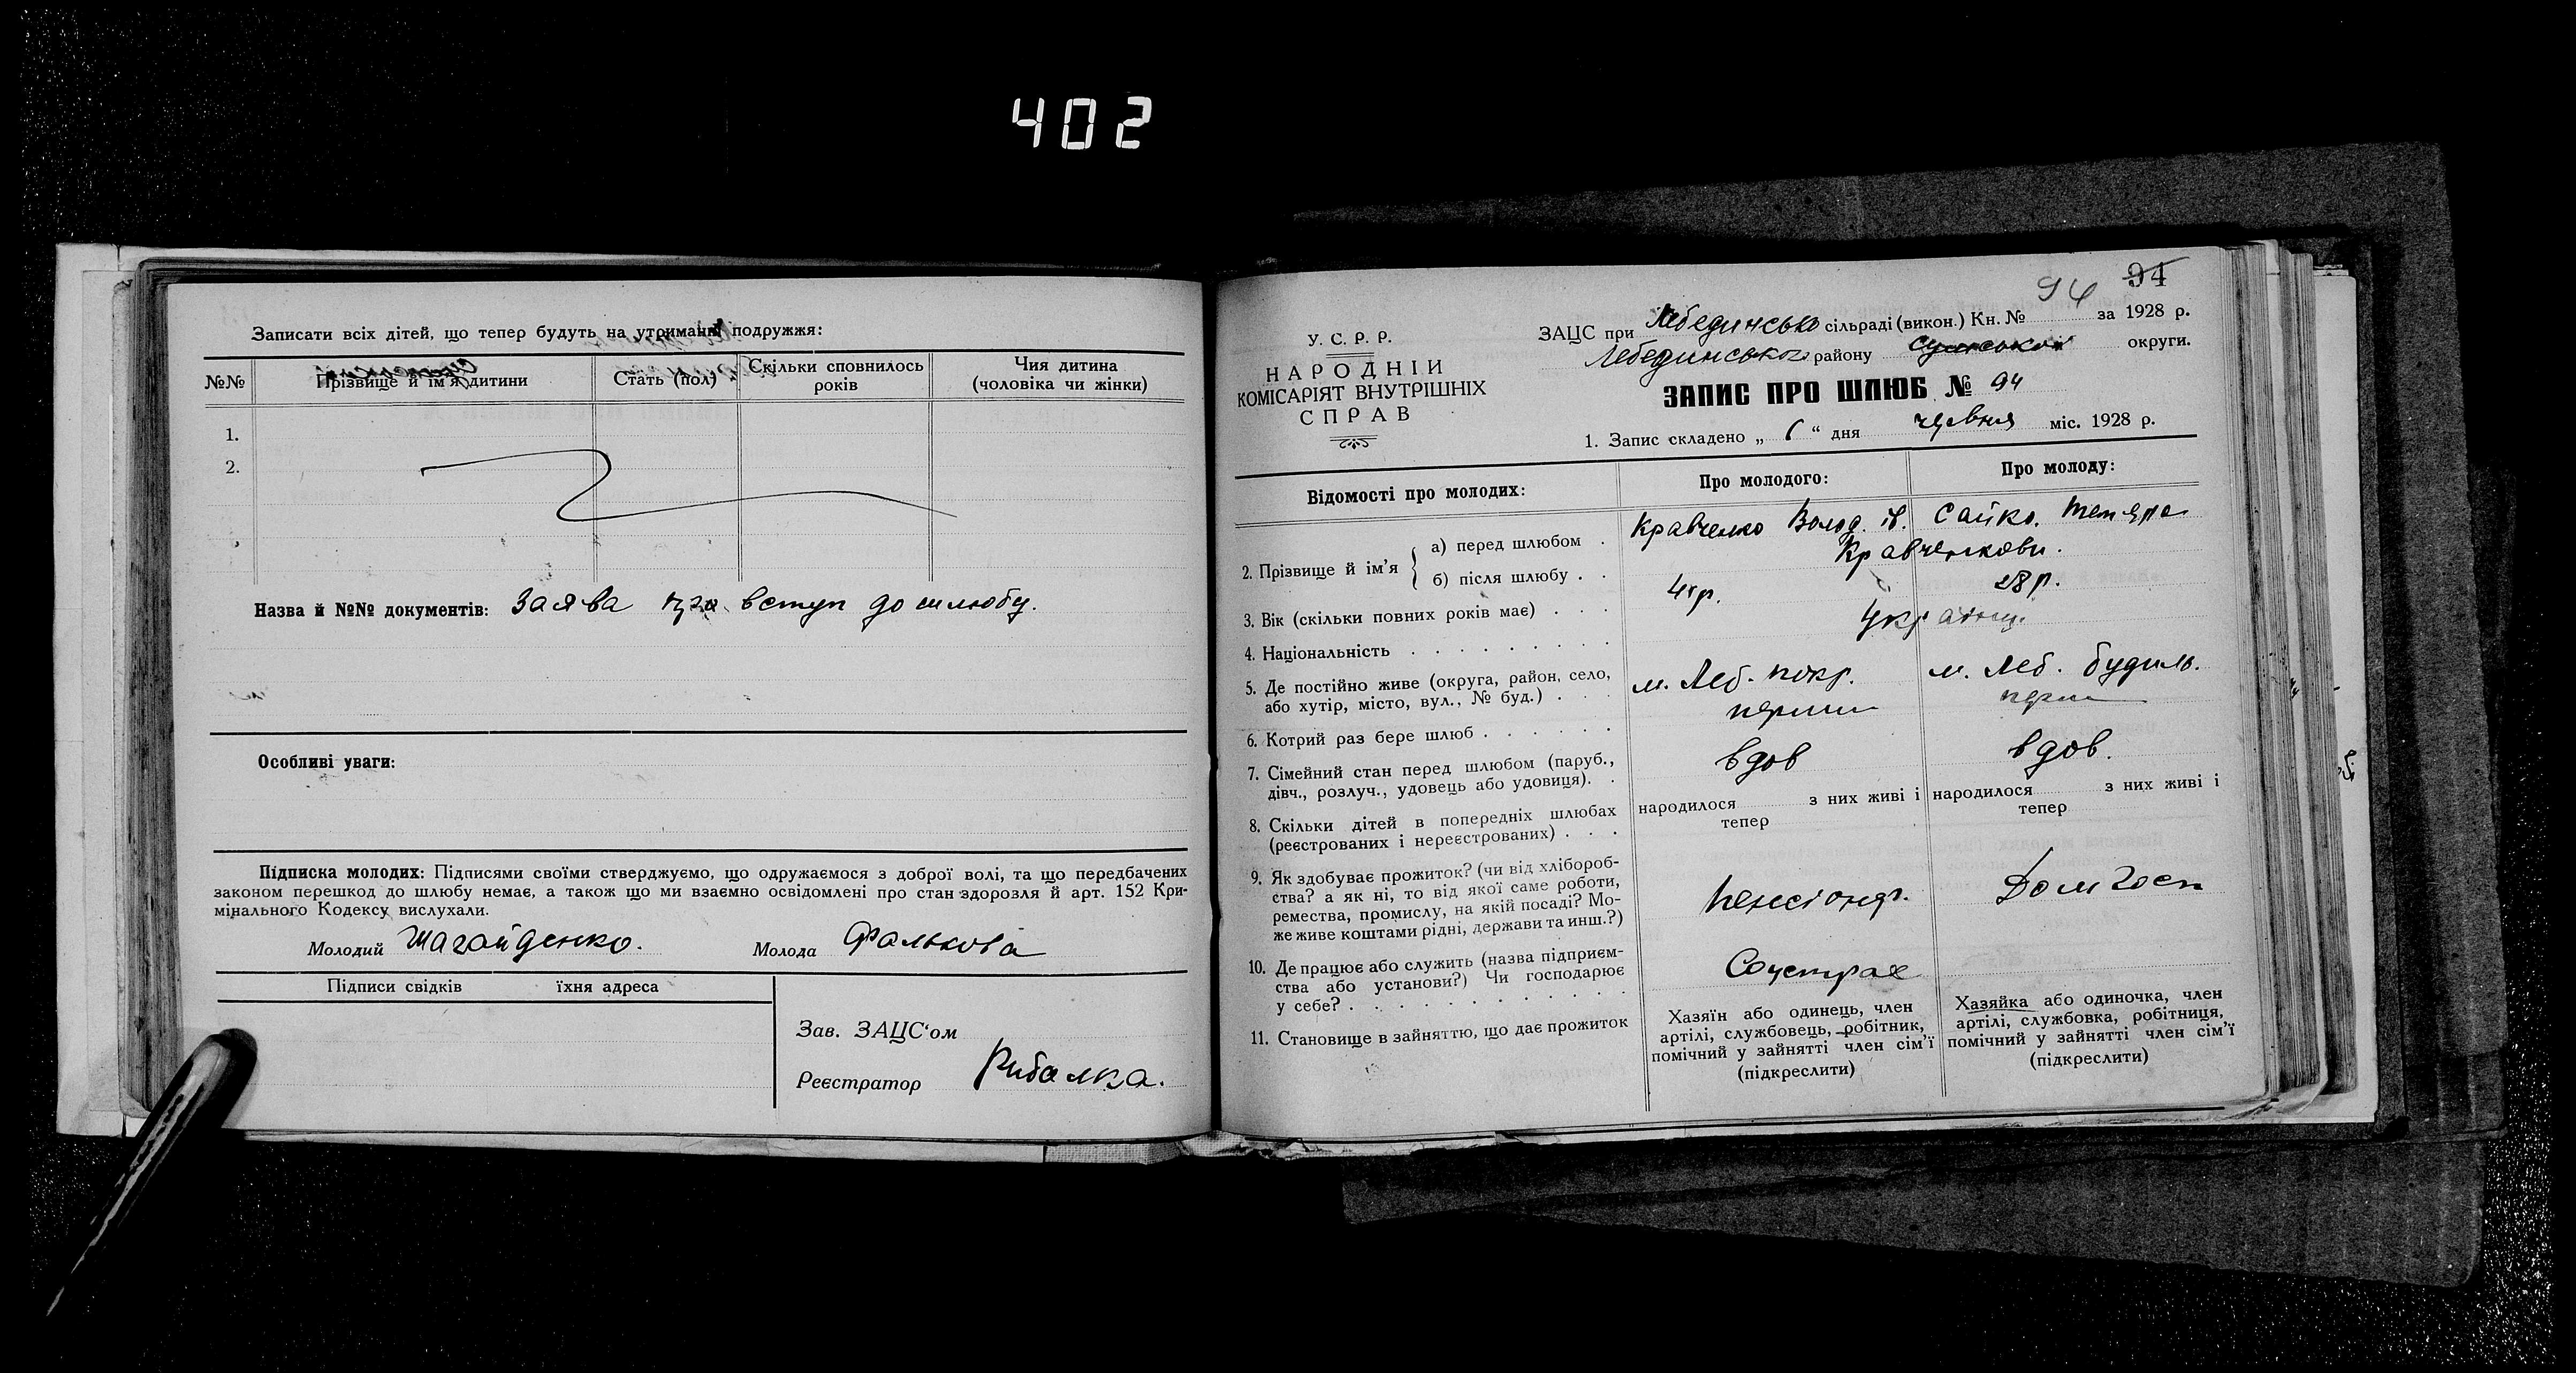 402
Записати всіх дітей, що тепер будуть на утриманні подружжя:
№№ Прізвище й ім'я дитини Стать (пол) Скільки сповнилось років Чия дитина (чоловіка чи жінки)
1.
2.
Назва й №№ документів: Заява про вступ до шлюбу.
Особливі уваги:
Підписка молодих: Підписями своїми стверджуємо, що одружаємося з доброї волі, та що передбачених
законом перешкод до шлюбу немає, а також що ми взаємно освідомлені про стан здоровля й арт. 152 Кри-
мінального Кодексу вислухали.
Молодий Шагайденко. Молода Фалькова
Підписи свідків їхня адреса
Зав. ЗАЦС'ом
Реєстратор Рибалка.
94 94
У. С. Р. Р.
НАРОДНІЙ
КОМІСАРІЯТ ВНУТРІШНІХ
СПРАВ
ЗАЦС при Лебединсько сільраді (викон.) Кн. № за 1928 р.
Лебединського району Сумської округи.
ЗАПИС ПРО ШЛЮБ № 94
1. Запис складено „ “ дня червня міс. 1928 р.
Відомості про молодих: Про молодого: Про молоду:
2. Прізвище й ім'я { а) перед шлюбом . Кравченко Волод. ів. Сайко. Тетяна
б) після шлюбу . . Кравченкови.
3. Вік (скільки повних років має) . . . р. 28 р.
4. Національність . . . . . . . . . Українц.
5. Де постійно живе (округа, район, село,
або хутір, місто, вул., № буд.) . . . м. Леб. покр. м. Леб. будиль.
6. Котрий раз бере шлюб . . . . . . перши перш
7. Сімейний стан перед шлюбом (паруб.,
дівч., розлуч., удовець або удовиця). . вдов вдов.
8. Скільки дітей в попередніх шлюбах
(реєстрованих і нереєстрованих) . . . народилося з них живі і тепер народилося з них живі і тепер
9. Як здобуває прожиток? (чи від хлібороб-
ства? а як ні, то від якої саме роботи,
ремества, промислу, на якій посаді? Мо-
же живе коштами рідні, держави та инш.?) пенсіонер. Дом госп
10. Де працює або служить (назва підприєм-
ства або установи?) Чи господарює
у себе? . . . . . . . . . . . . Соцстрах
11. Становище в зайняттю, що дає прожиток
Хазяїн або одинець, член
артілі, службовець, робітник,
помічний у зайнятті член сім'ї
(підкреслити)
Хазяйка або одиночка, член
артілі, службовка, робітниця,
помічний у зайнятті член сім'ї
(підкреслити)